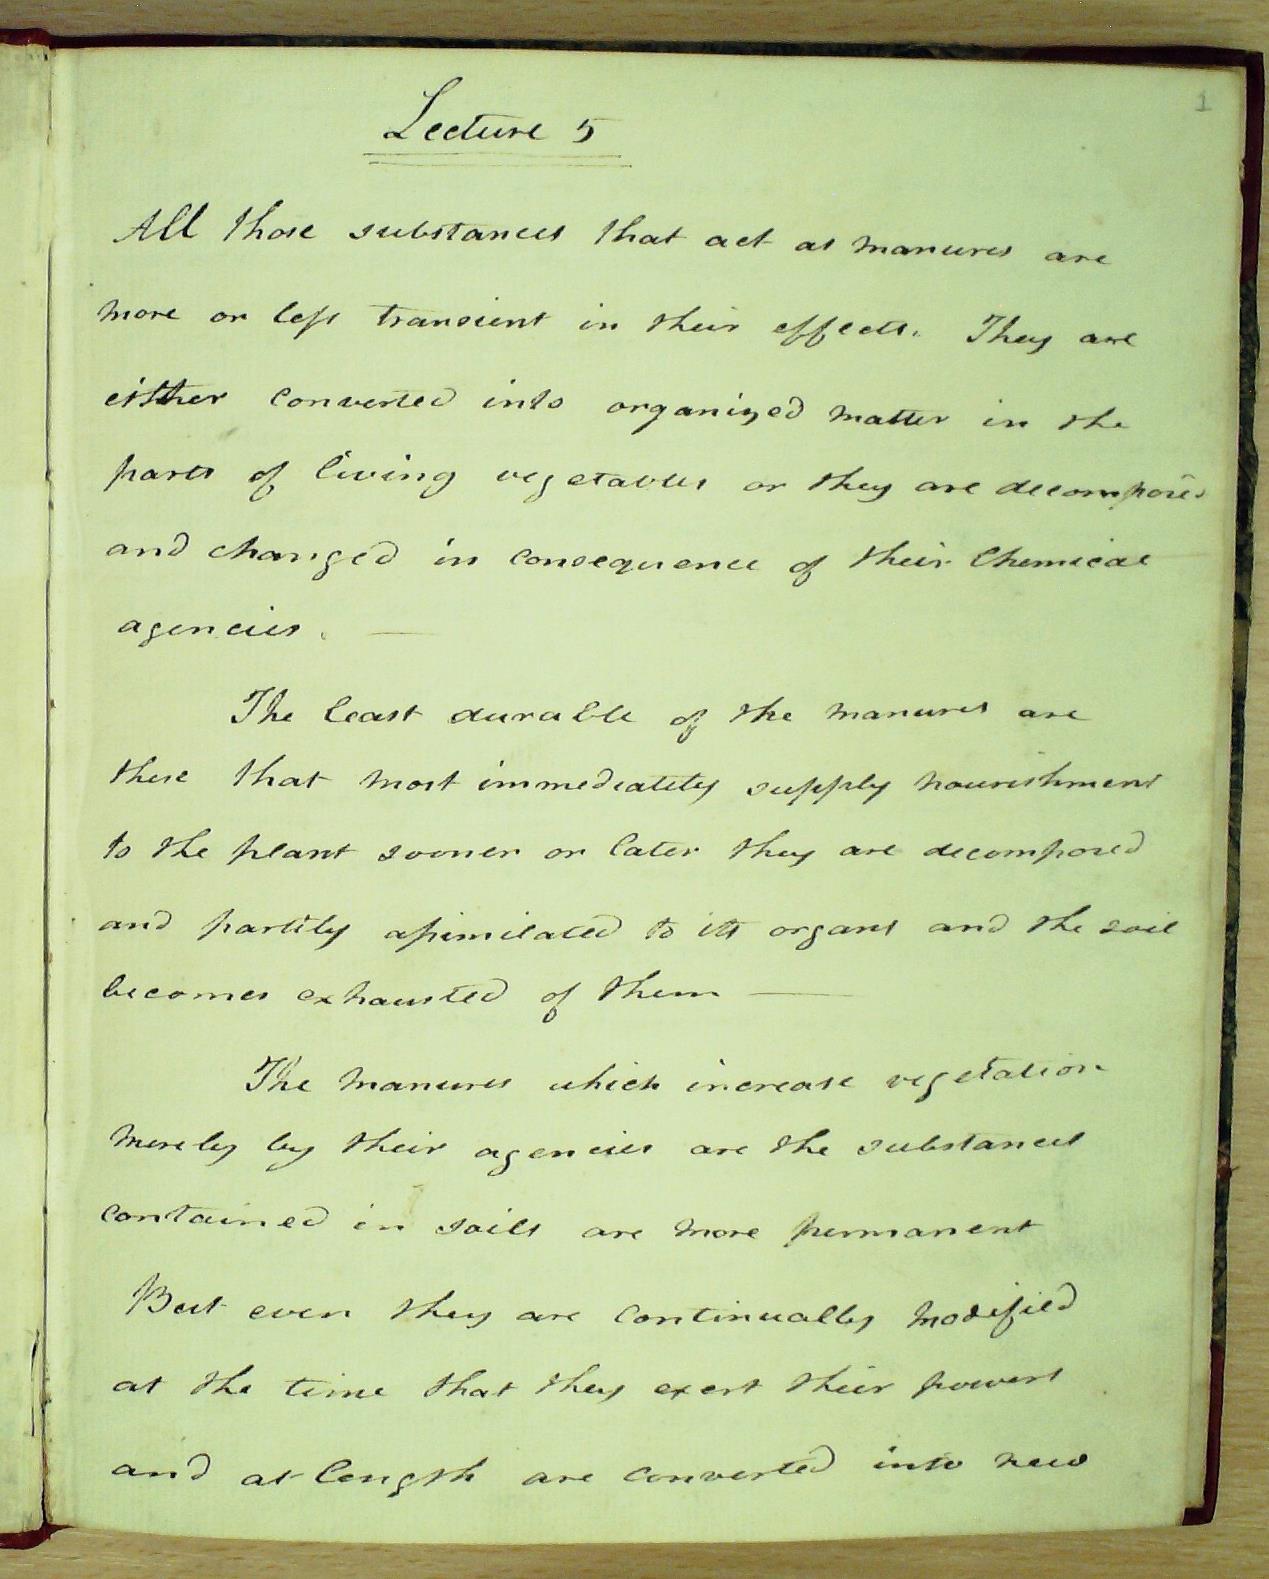 1
Lecture 5
All those substances that act as manures are
more or less transient in their effects. They are
either converted into organized matter in the
parts of living vegetables or they are decomposed
and changed in consequence of their Chemical
agencies. —
The least durable of the manures are
these that most immediately supply nourishment
to the plant sooner or later they are decomposed
and partily assimilated to its organs and the soil
becomes exhausted of them —
The manures which increase vegetation
merely by their agencies are the substances
contained in soils are more permanent
But even they are continually modified
at the time that they exert their powers
and at length are converted into new